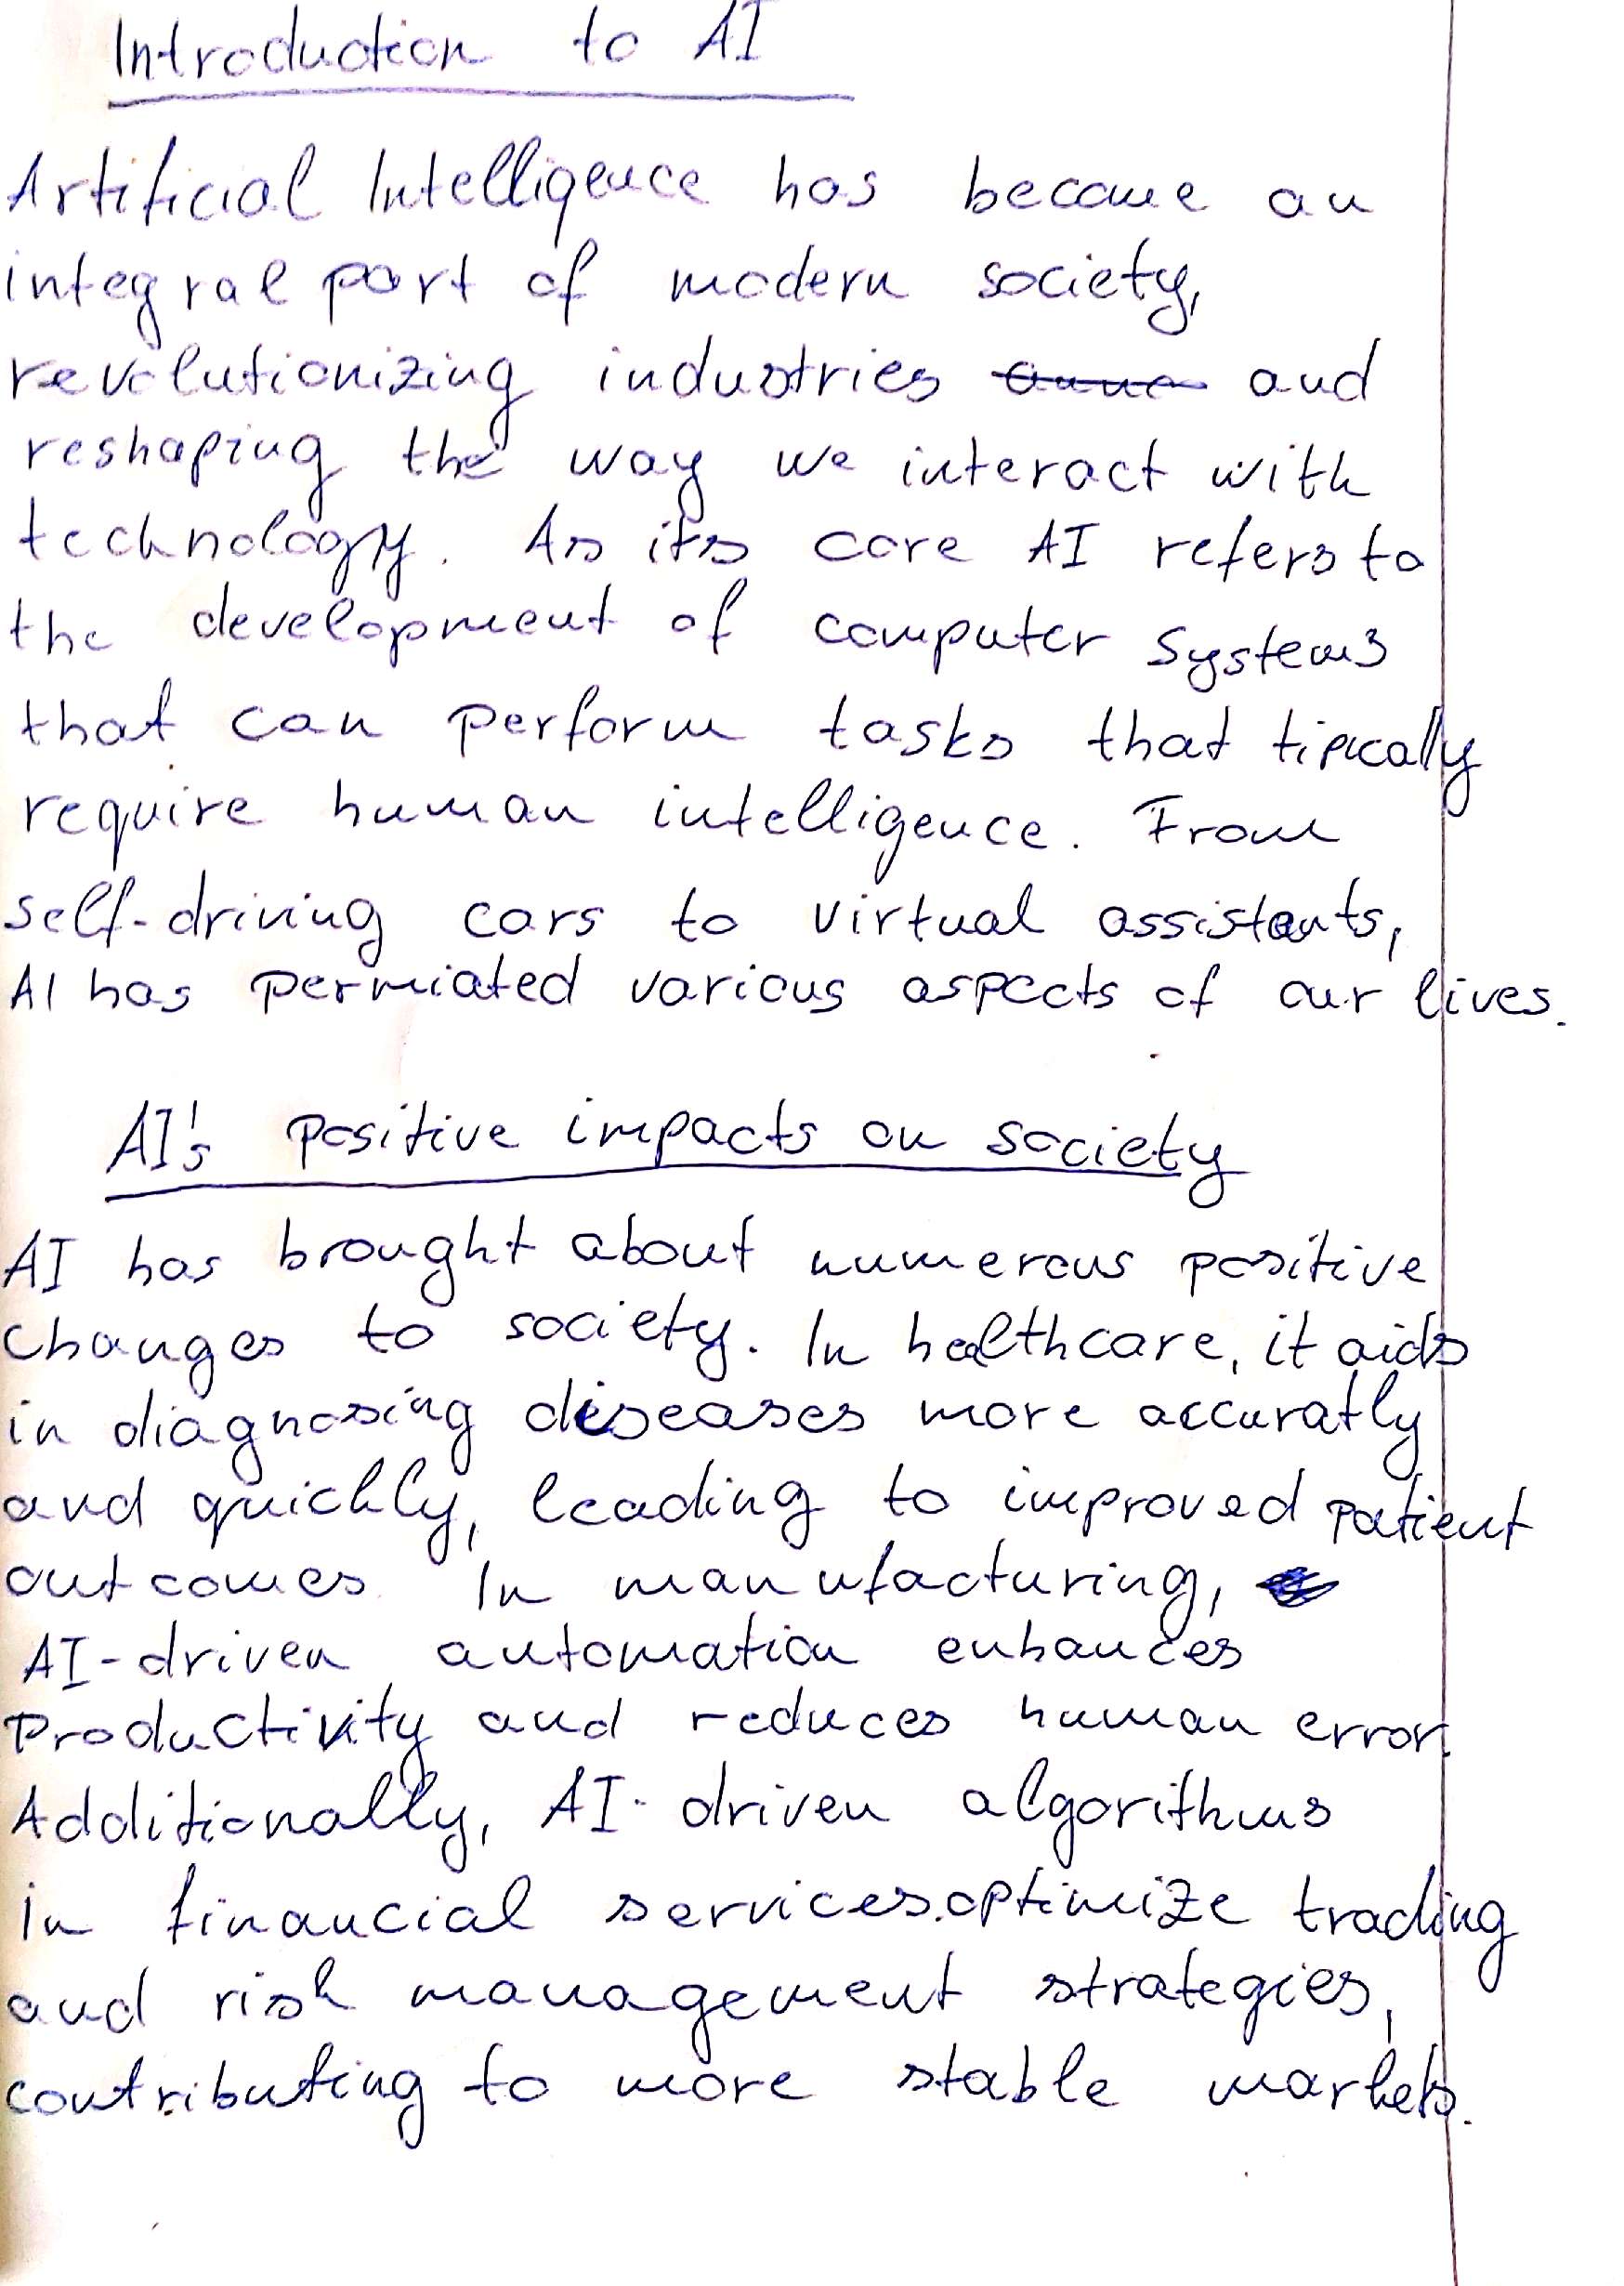 Introduction to AI
Artificial Intelligence has become an
integral part of modern society,
revolutionizing industries and
reshaping the way we interact with
technology. As its core AI refers to
the development of computer systems
that can perform tasks that tipically
require human intelligence. From
self-driving cars to virtual assistants,
AI has permiated various aspects of our lives.
AI's positive impacts on society
AI has brought about numerous positive
changes to society. In healthcare, it aids
in diagnosing diseases more accuratly
and quickly, leading to improved patient
outcomes. In manufacturing,
AI-driven automation enhances
productivity and reduces human error.
Additionally, AI-driven algorithms
in financial services optimize trading
and risk management strategies,
contributing to more stable markets.